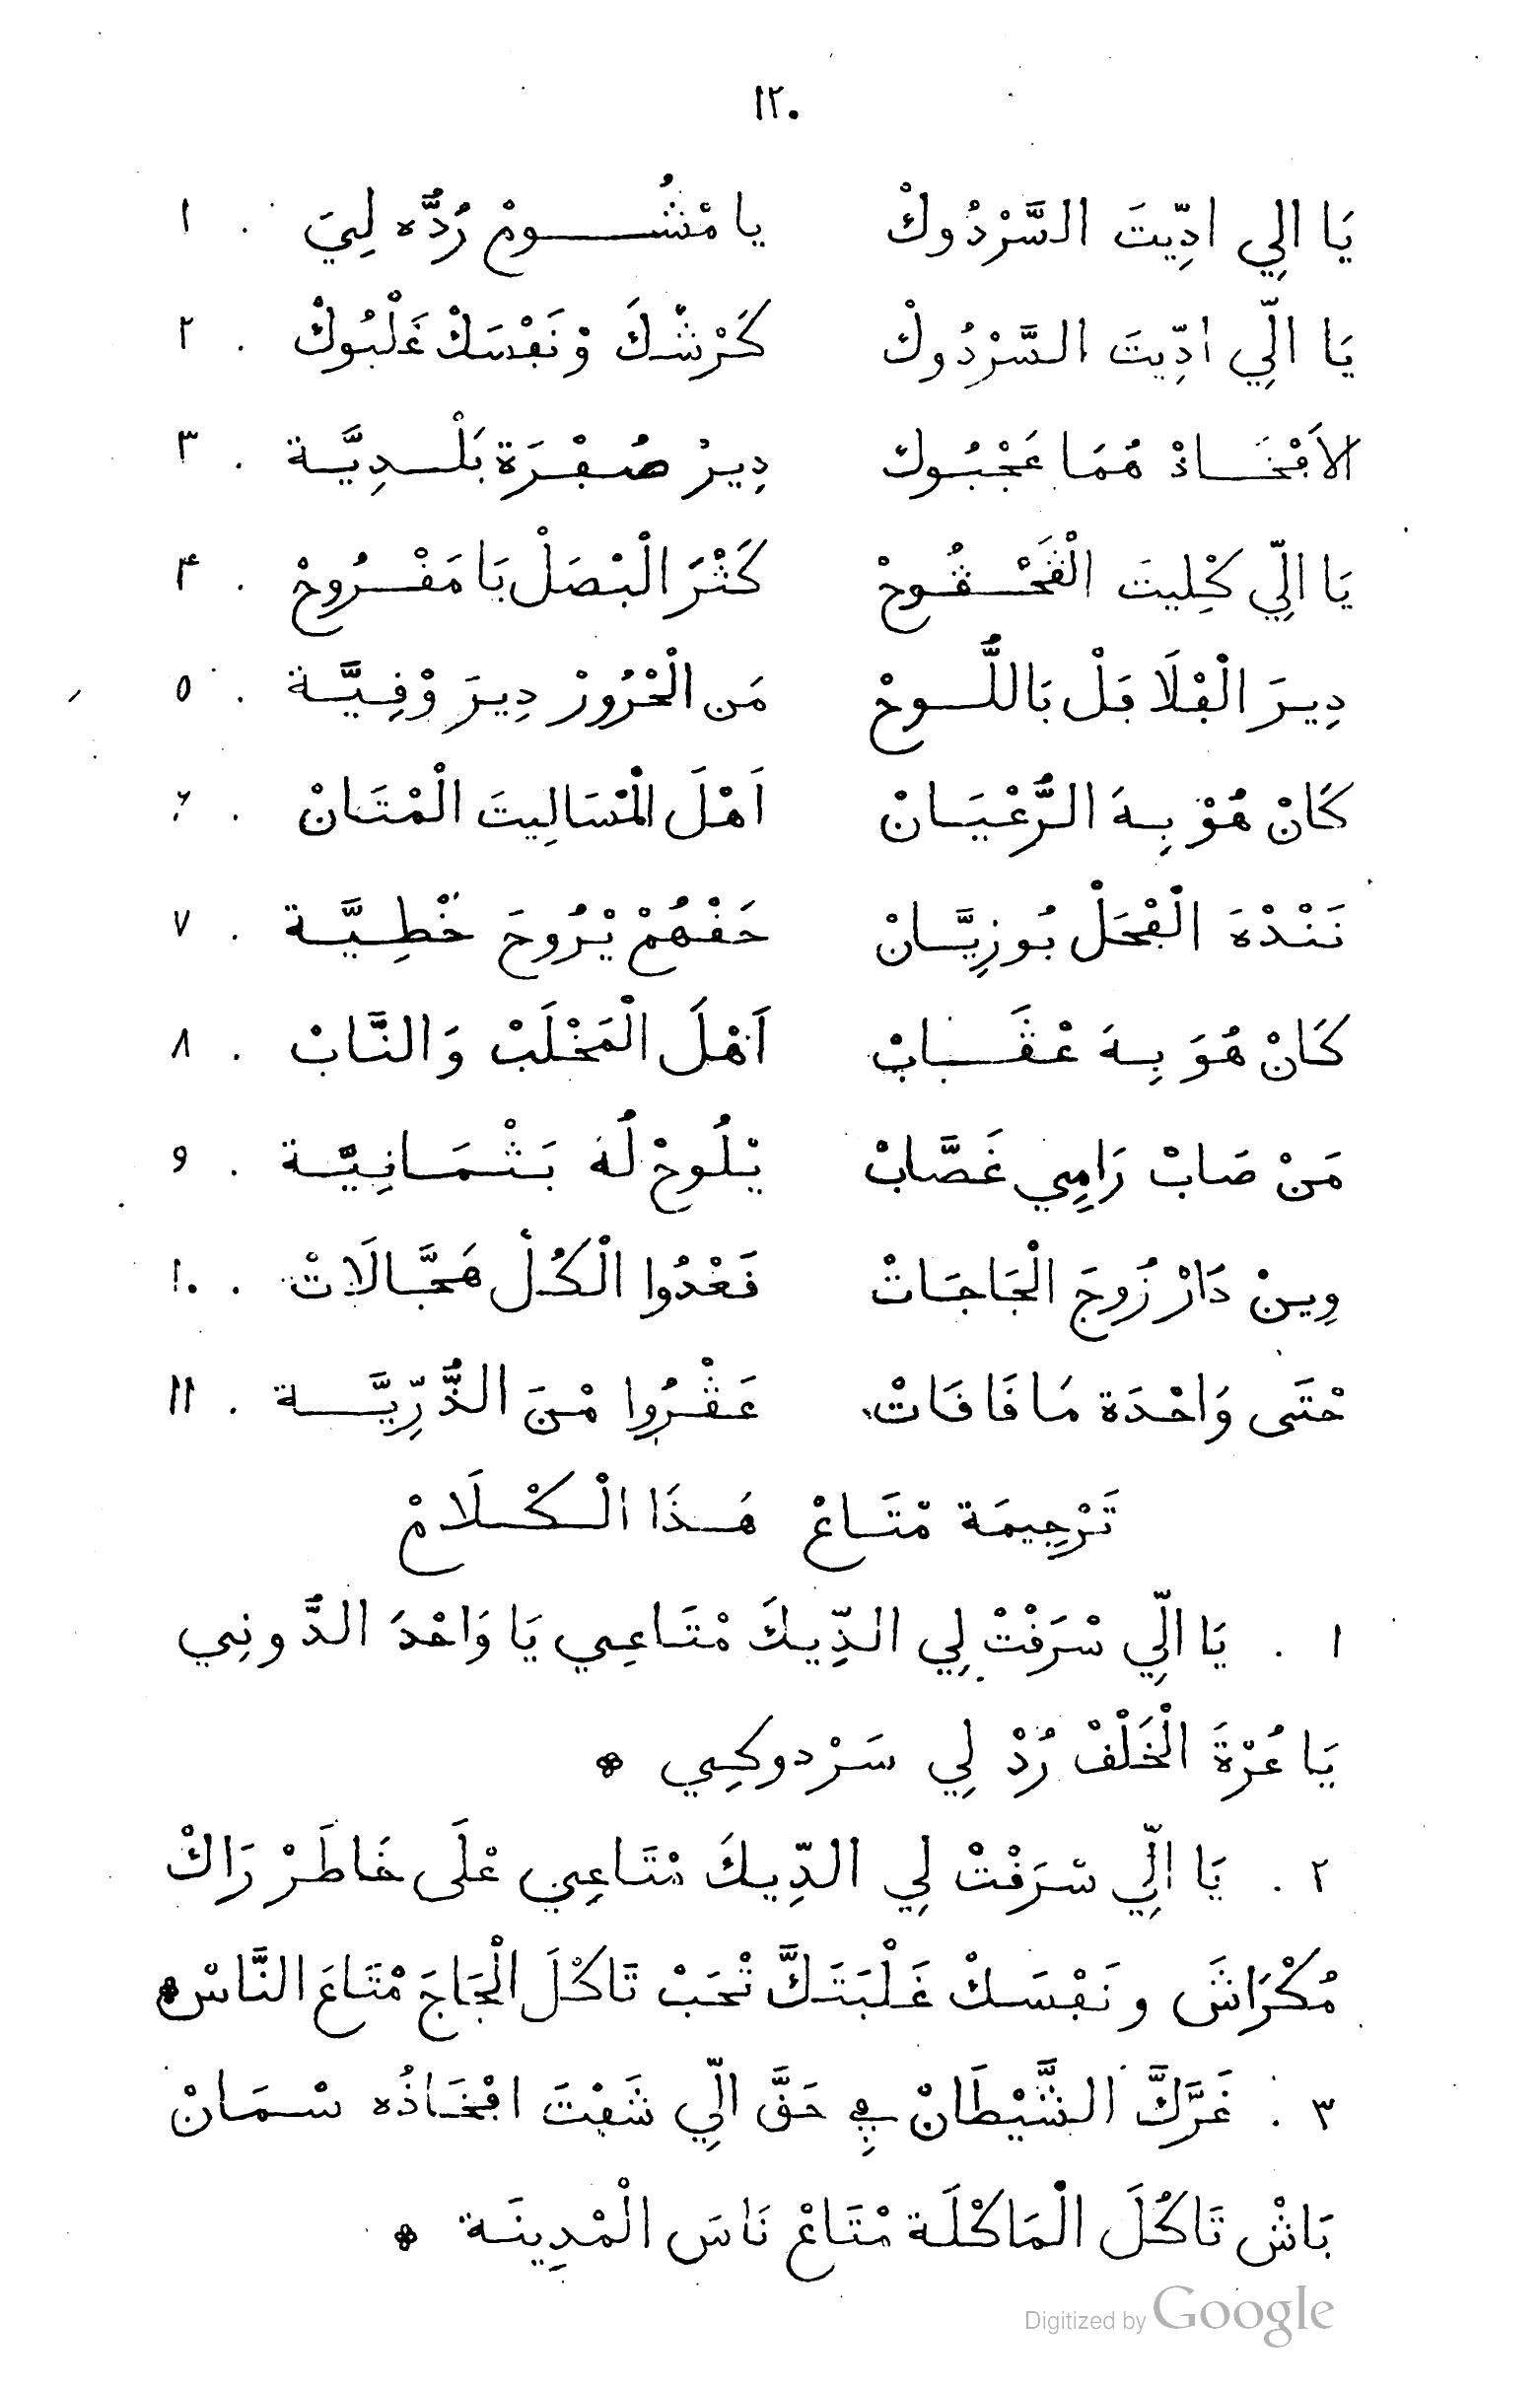 ١٢٠
يَا الِي ادِّيتَ السَّرْدُوكْ يا مْشُومْ رُدُّه لِيَ . ١
يَا الِّي ادِّيتَ السَّرْدُوكْ كَرْشْكَ وْنَڢْسَكْ غَلْبُوكْ . ٢
الاَڢْخَاذْ هُمَا عَجْبُوكْ دِيرْ صُڢْرَة بَلْدِيَّة . ٣
يَا الِّي كْلِيتَ الْڨَحْڨُوحْ كَثْرَ الْبْصَلْ يَا مَفْرُوحْ . ۴
دِيرَ الْڢْلَاڢَلْ بَاللُّوحْ مَن الْحْرُورْ دِيرَ وْفِيَّة . ٥
كَانْ هُوْ بِهَ الرُّعْيَانْ اَهْلَ الْمْسَالِيتَ الْمْتَانْ . ۶
نَنْدْهَ الْڢْحَلْ بُوزِيَّانْ حَفْهُمْ يْرُوحَ خْطِيَّة . ٧
كَانْ هُوَ بِهَ عْڨَبَابْ اَهْلَ الْمَخْلَبْ وَالنَّابْ . ٨
مَنْ صَابْ رَامِي غَصَّابْ يْلُوحْ لُهَ بَثْمَانِيَّة . ٩
وِينْ دَارْ زُوجَ الْجَاجَاتْ فَعْدُوا الْكُلْ هَجَّالَاتْ . ١٠
حْتَى وَاحْدَة مَا فَافَاتْ عَڨْرُوا مْنَ الذُّرِّيَّة . ١١
تَرْجِيمَة مْتَاعْ هَذَا الْكْلَامْ
١ . يَا الِّي سْرَفْتْ لِي الدِّيكَ مْتَاعِي يَا وَاحْدَ الدُّونِي
يَا عُرْةَ الْخَلْفْ رُدْ لِي سَرْدوكِي *
٢ . يَا الِّي سْرَفْتْ لِي الدِّيكَ مْتَاعِي عْلَى خَاطَرْ رَاكْ
مُكْرَاشَ ونَڢْسَكْ غَلْبَتَكَّ تْحَبْ تَاكْلَ الْجَاجَ مْتَاعَ النَّاسْ *
٣ . غَرَّكَّ الشَّيْطَانْ ڢِي حَقَّ الِّي شَڢْتَ اڢْخَاذُه سْمَانْ
بَاشْ تَاكُلَ الْمَاكْلَة مْتَاعْ نَاسَ الْمْدِينَة *
Digitized by Google